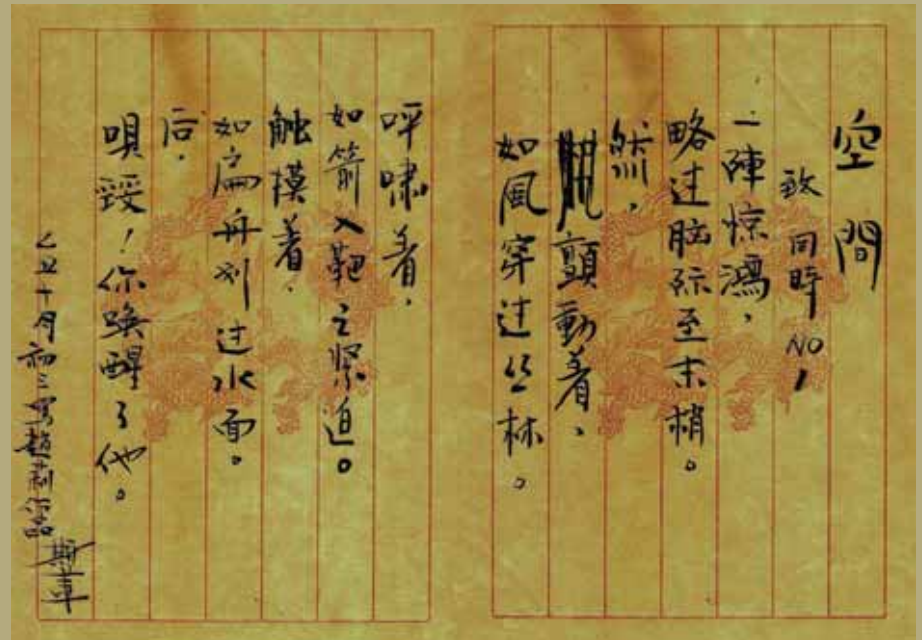 空間
致 同時 NO1
一陣惊鴻，
略过脑际至末梢。
然，
顫動着、
如風穿过丛林。
呼啸着，
如箭入靶之紧迫。
触摸着，
如扁舟划过水面。
后，
唄！你唤醒了他。
乙丑十月初三